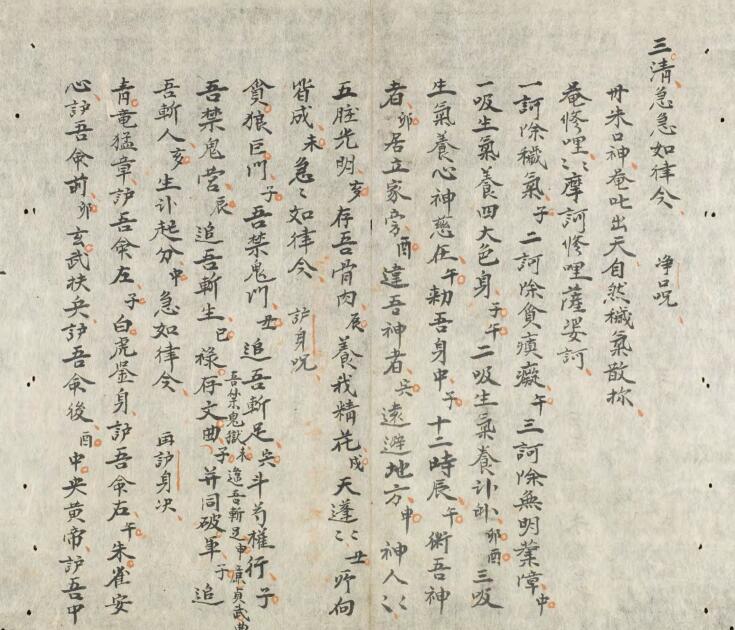 三清急急如律令　净口呪
丹朱口神菴叱出天自然穢氣散
菴修哩〻摩訶修哩薩娑訶
一訶除穢氣子二訶除貪瘨癡午三訶除無明業障申
一吸生氣養四大色身子午二吸生氣養卟卧卯酉三吸
生氣養心神慈在午勅吾身中子十二時辰午衛吾神
者卯居立家旁酉違吾神者吴遠避地方申神人〻
五脏光明亥存吾骨肉辰養我精花戍天蓬〻丑所向
皆成未急〻如律令　護身呪
貪狼巨門子吾禁鬼門丑追吾斬足吴斗芍權行子
吾禁鬼營辰追吾斬生巳禄存文曲子吾禁鬼獄未追吾斬足申廉貞武曲并同破軍子追
吾斬人亥生卟起分申急如律令　再护身决
青竜猛章护吾侌左子白虎㘅身护吾侌右午朱雀安
心护吾侌前卯玄武扶兵护吾侌後酉中央黄帝护吾中